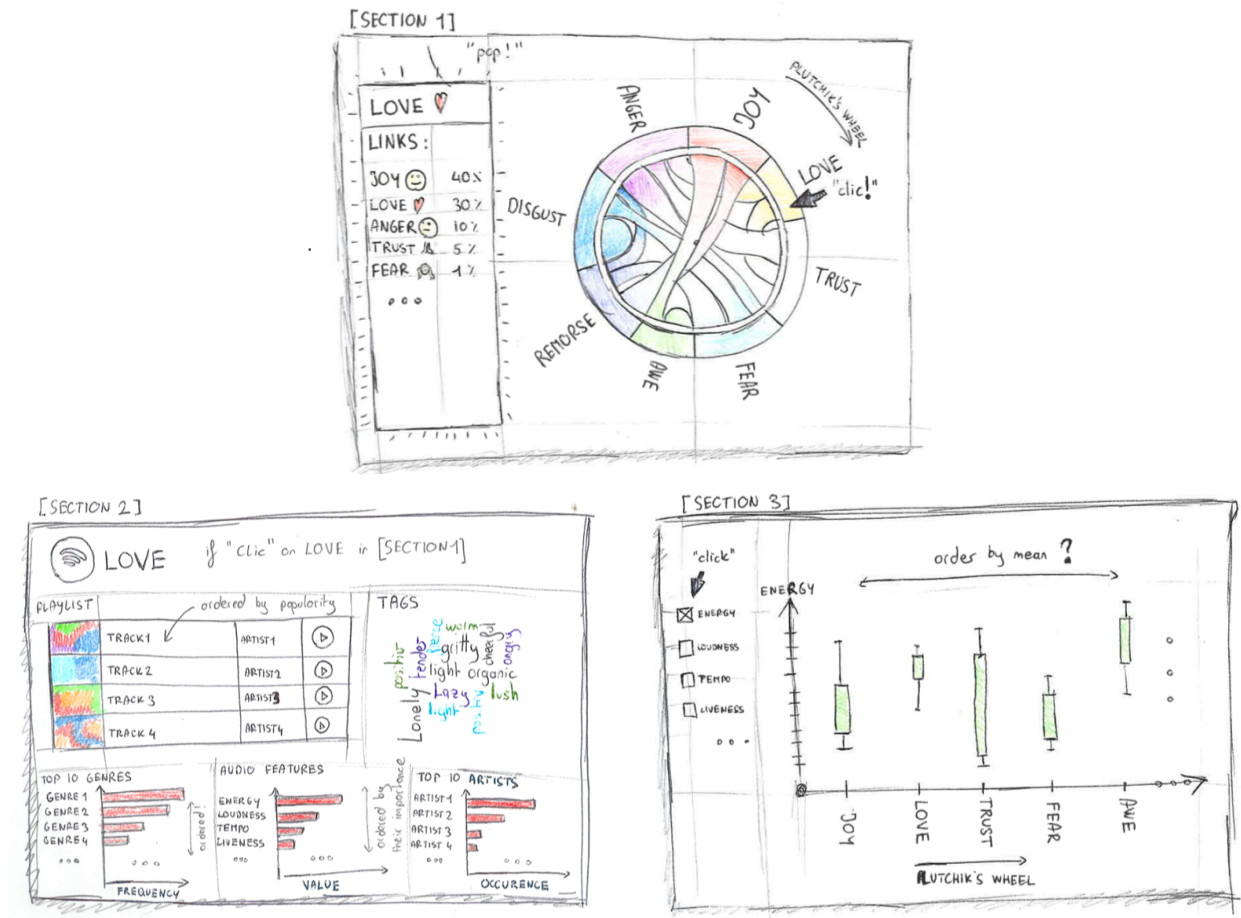 [SECTION 1]
"pop!"
LOVE
LINKS:
JOY 40%
LOVE 30%
ANGER 10%
TRUST 5%
FEAR 1%
ANGER
JOY
PLUTCHIK'S WHEEL
LOVE
"clic!"
DISGUST
TRUST
REMORSE
AWE
FEAR
[SECTION 2]
LOVE
if "clic" on LOVE in [SECTION1]
PLAYLIST
ordered by popularity
TRACK1 ARTIST1
TRACK2 ARTIST2
TRACK 3 ARTIST3
TRACK 4 ARTIST4
TAGS
warm
positiv
tender
gritty
cheerful
angry
light organic
Lonely
Lazy
lush
light
positiv
TOP 10 GENRES
GENRE 1
GENRE 2
GENRE 3
GENRE 4
ordered!
FREQUENCY
AUDIO FEATURES
ENERGY
LOUDNESS
TEMPO
LIVENESS
ordered by
their importance
VALUE
TOP 10 ARTISTS
ARTIST 1
ARTIST 2
ARTIST 3
ARTIST 4
OCCURENCE
[SECTION 3]
"click"
ENERGY
LOUDNESS
TEMPO
LIVENESS
ENERGY
order by mean ?
JOY
LOVE
TRUST
FEAR
AWE
PLUTCHIK'S WHEEL